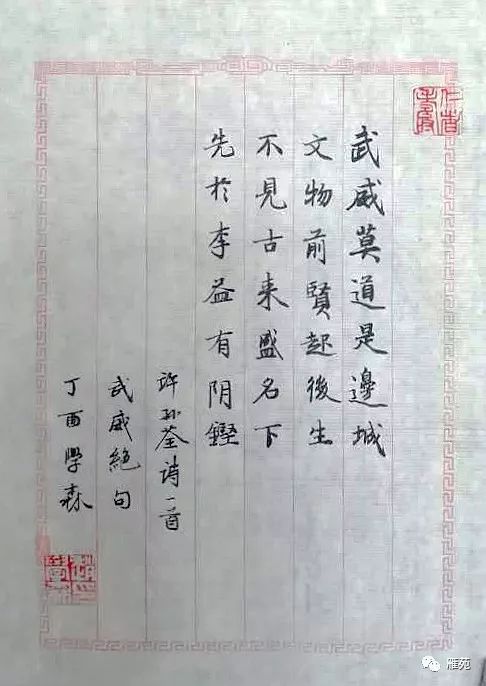 武威莫道是邊城
文物前賢起後生
不見古来盛名下
先於李益有阴鏗
許孙荃诗一首
武威絕句
丁酉學森
仁者
雁苑